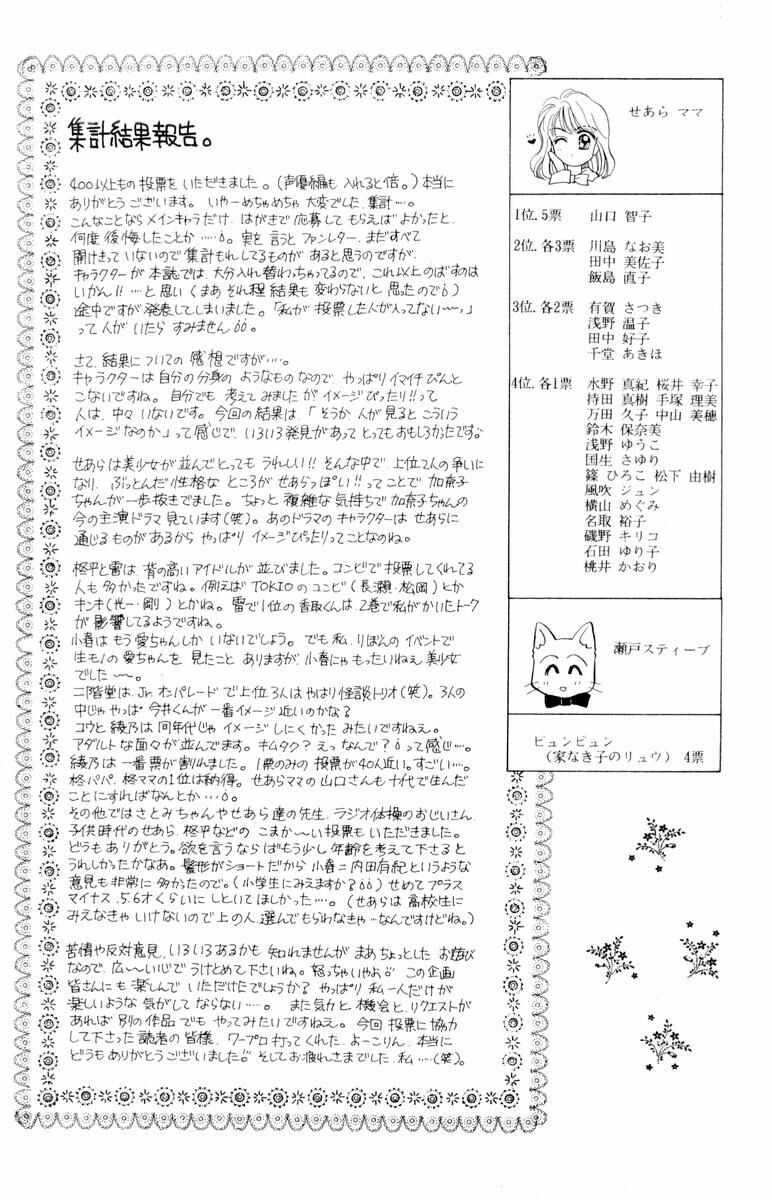 集計結果報告。
400以上もの投票をいただきました。(声優編も入れると倍。)本当に
ありがとうございます。いやーめちゃめちゃ大変でした、集計…。
こんなことならメインキャラだけ、はがきで応募してもらえばよかったと、
何度後悔したことか……。実を言うとファンレター、まだすべて
開けきっていないので集計もれしてるものがあると思うのですが、
キャラクターが本誌では、大分入れ替わっちゃってるので、これ以上のばすのは
いかん!!…と思い(まあそれ程結果も変わらないと思ったので)
途中ですが発表してしまいました。「私が投票した人が入ってない〜っ」
って人がいたらすみません。
さて、結果についての感想ですが…。
キャラクターは自分の分身のようなものなので、やっぱりイマイチぴんと
こないですね。自分でも考えてみましたがイメージぴったり!!って
人は、中々いないです。今回の結果は、「そうか人が見るとこういう
イメージなのか」って感じで、いろいろ発見があってとってもおもしろかったです。
せあらは美少女が並んでとってもうれしい!!そんな中で、上位2人の争いに
なり、ぶっとんだ性格なところがせあらっぽい!!ってことで加奈子
ちゃんが一歩抜きでました。ちょっと複雑な気持ちで加奈子ちゃんの
今の主演ドラマ見ています(笑)。あのドラマのキャラクターはせあらに
通じるものがあるからやっぱりイメージぴったりってことなのね。
柊平と雷は背の高いアイドルが並びました。コンビで投票してくれてる
人も多かったですね。例えばTOKIOのコンビ(長瀬・松岡)とか
キンキ(光一・剛)とかね。雷で1位の香取くんは、2巻で私がかいたトーク
が影響してるようですね。
小春はもう愛ちゃんしかいないでしょう。でも私、りぼんのイベントで
生モノの愛ちゃんを見たことありますが、小春にゃもったいねえ美少女
でした〜。
二階堂は、Jr.オンパレードで上位3人はやはり怪談トリオ(笑)。3人の
中じゃやっぱ今井くんが一番イメージ近いのかな?
コウと綾乃は同年代じゃイメージしにくかったみたいですねえ。
アダルトな面々が並んでます。キムタク?えっなんで?って感じ…。
綾乃は一番票が割れました。1票のみの投票が40人近い。すごい…。
柊パパ、柊ママの1位は納得。せあらママの山口さんも十代で生んだ
ことにすればなんとか…。
その他ではさとみちゃんやせあら達の先生、ラジオ体操のおじいさん、
子供時代のせあら、柊平などのこまか〜い投票もいただきました。
どうもありがとう。欲を言うならばもう少し年齢を考えて下さると
うれしかったかなあ。髪形がショートだから小春=内田有紀というような
意見も非常に多かったので。(小学生にみえますか?)せめてプラス
マイナス、5.6才くらいにしといてほしかった…。(せあらは高校生に
みえなきゃいけないので上の人、選んでもらわなきゃ…なんですけどね。)
苦情や反対意見、いろいろあるかも知れませんがまあちょっとしたお遊び
なので、広〜い心でうけとめて下さいね。怒っちゃいやよ。この企画
皆さんにも楽しんでいただけたでしょうか?やっぱり私一人だけが
楽しいような気がしてならない……。また気力と機会と、リクエストが
あれば別の作品でもやってみたいですねえ。今回投票に協力
して下さった読者の皆様、ワープロ打ってくれた、よーこりん、本当に
どうもありがとうございました。そしてお疲れさまでした、私…(笑)。
せあら ママ
1位.5票 山口 智子
2位.各3票 川島 なお美
田中 美佐子
飯島 直子
3位.各2票 有賀 さつき
浅野 温子
田中 好子
千堂 あきほ
4位.各1票 水野 真紀 桜井 幸子
持田 真樹 手塚 理美
万田 久子 中山 美穂
鈴木 保奈美
浅野 ゆうこ
国生 さゆり
篠 ひろこ 松下 由樹
風吹 ジュン
横山 めぐみ
名取 裕子
磯野 キリコ
石田 ゆり子
桃井 かおり
瀬戸スティーブ
ピュンピュン
(家なき子のリュウ) 4票